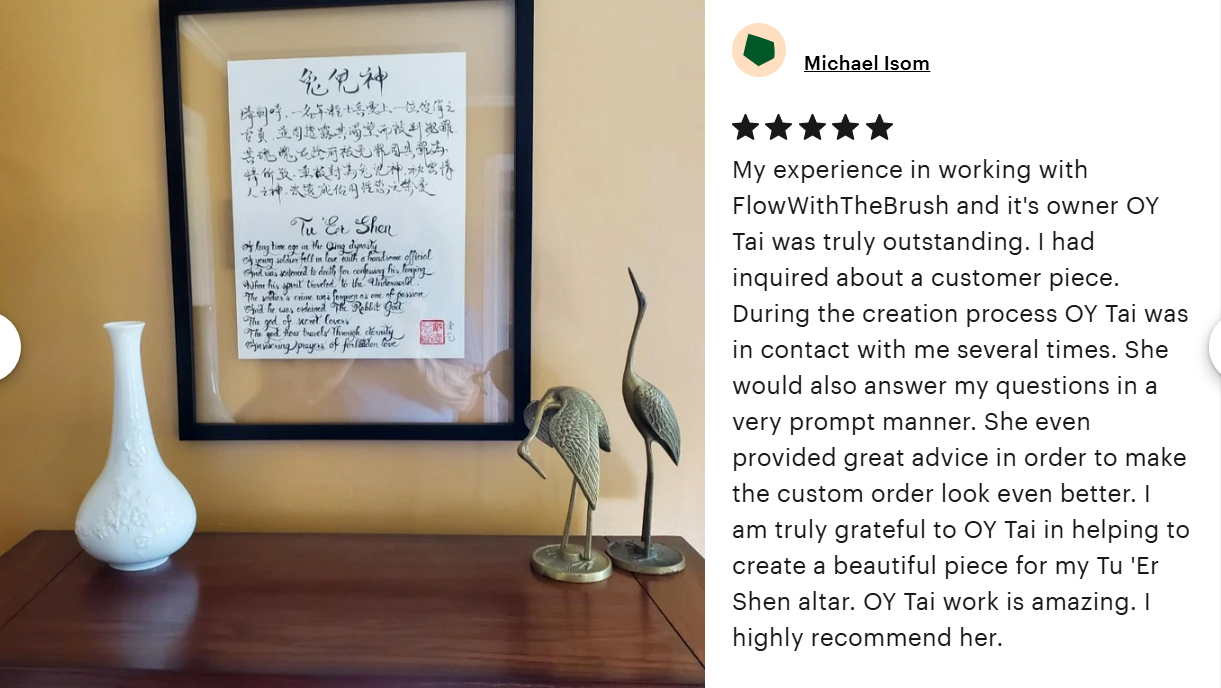 兔兒神
朝時，一名年輕士兵愛上一位俊偉之
官員，並因透露其渴望而被判死罪
其魂魄在陰府被免罪因其罪為
情所致，並被封為兔兒神，秘密情
人之神，永遠
Tu 'Er Shen
A long time ago in the Qing dynasty
A young soldier fell in love with a handsome official
And was sentenced to death for confessing his longing
When his spirit traveled to the Underworld
The soldier's crime was forgiven as one of passion
And he was ordained The Rabbit God
The god of secret lovers
The god now travels through eternity
Answering prayers of forbidden love
Michael Isom
My experience in working with
FlowWithTheBrush and it's owner OY
Tai was truly outstanding. I had
inquired about a customer piece.
During the creation process OY Tai was
in contact with me several times. She
would also answer my questions in a
very prompt manner. She even
provided great advice in order to make
the custom order look even better. I
am truly grateful to OY Tai in helping to
create a beautiful piece for my Tu 'Er
Shen altar. OY Tai work is amazing. I
highly recommend her.